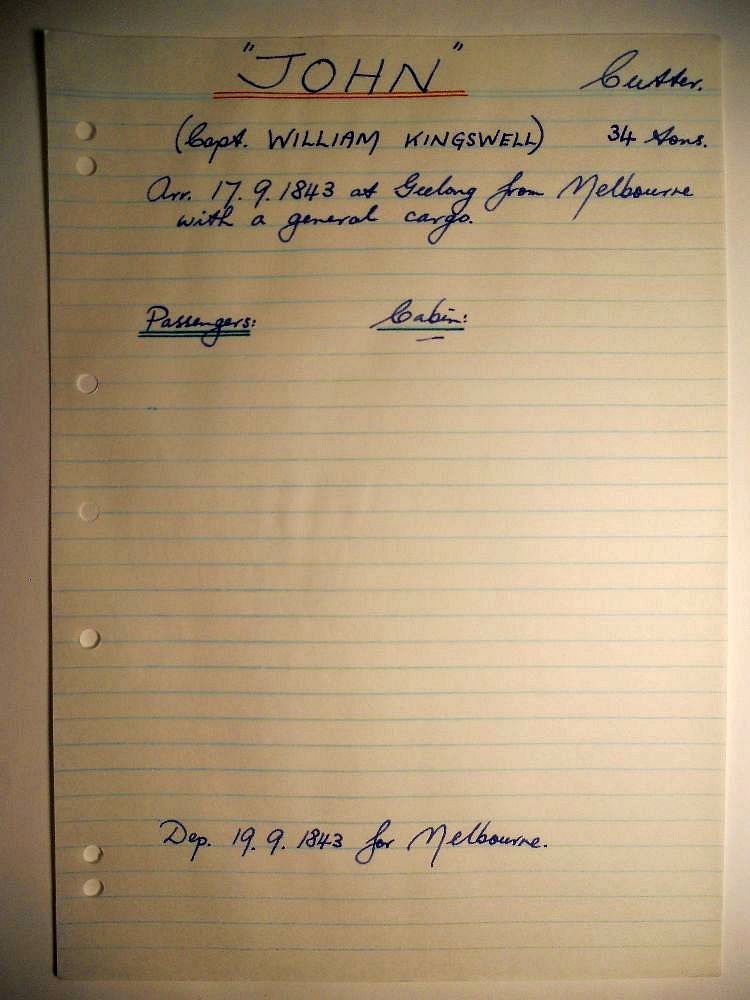 "JOHN" Cutter.
(Capt. WILLIAM KINGSWELL) 34 tons.
Arr. 17.9.1843 at Geelong from Melbourne
with a general cargo.
Passengers: Cabin:
—
Dep. 19.9.1843 for Melbourne.